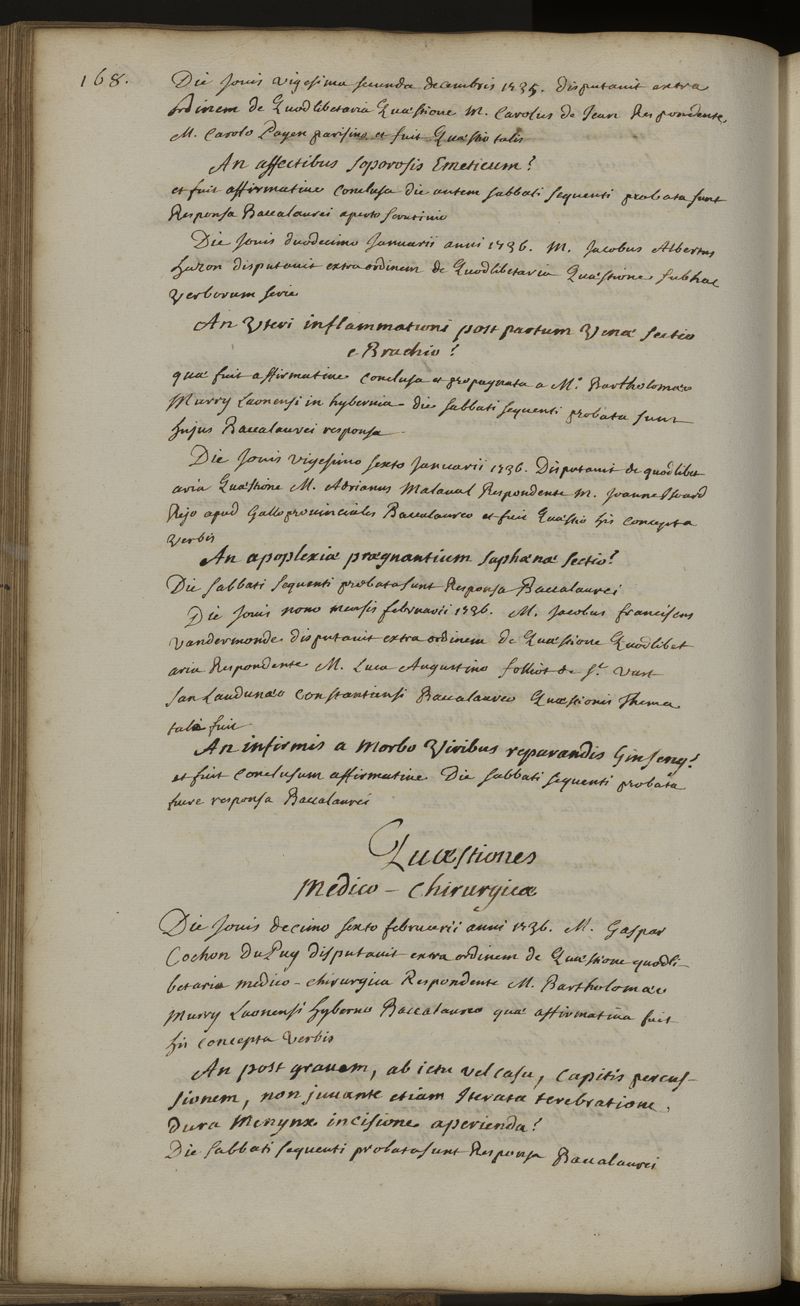 168.
Die Jovis vigesima secunda decembris 1735. disputavit extra
ordinem de Quodlibetaria Quæstione M. Carolus de Jean Respondente
M. Carolo Payen parisino et fuit Quæstio talis
An affectibus soporosis Emeticum?
et fuit affirmative conclusa die autem sabbati sequenti probata sunt
Responsa Baccalaurei aperto scrutinio
Die Jovis duodecimo Januarii anni 1736. M. Jacobus Albertus
hazon disputavit extra ordinem de Quodlibetaria Quæstione sub hac
verborum serie
An Uteri inflammationi post partum Venæ sectio
e Brachio?
quæ fuit affirmative conclusa et propugnata a M.º Bartholomæo
Murry Laonensi in hybernia die sabbati sequenti probata sunt
hujus Baccalaurei responsa
Die Jovis vigesimo sexto Januarii 1736. Disputavit de quodlibet
aria Quæstione M. Adrianus Malaval Respondente M. Joanne
apud Galloprovinciales Baccalaureo et fuit Quæstio his concepta
verbis
An apoplexiæ prægnantium saphænæ sectio?
Die sabbati sequenti probata sunt Responsa Baccalaurei
Die Jovis nono mensis februarii 1736. M. Jacobus franciscus
Vandermonde disputavit extra ordinem de Quæstione Quodlibet
aria Respondente M. Luca Augustino folliot de S.t Vast
San Laudunæo Constantiensi Baccalaureo Quæstionis Thema
tale fuit
An infirmis a Morbo Viribus reparandis Ginseng?
et fuit conclusum affirmative Die sabbati sequenti probata
fuere responsa Baccalaurei
Quæstiones
Medico - Chirurgicæ
Die Jovis decimo sexto februarii anni 1736. M. Gaspar
Cochon du Puy disputavit extra ordinem de Quæstione quodli-
betaria medico - chirurgica Respondente M. Bartholomæo
Murry Laonensi Hyberno Baccalaureo quæ affirmativa fuit
his concepta verbis
An post gravem, ab ictu vel casu, capitis percus-
sionem, non juvante etiam Iterata terebratione,
dura Menynx incisione aperienda?
Die sabbati sequenti probata sunt Responsa Baccalaurei